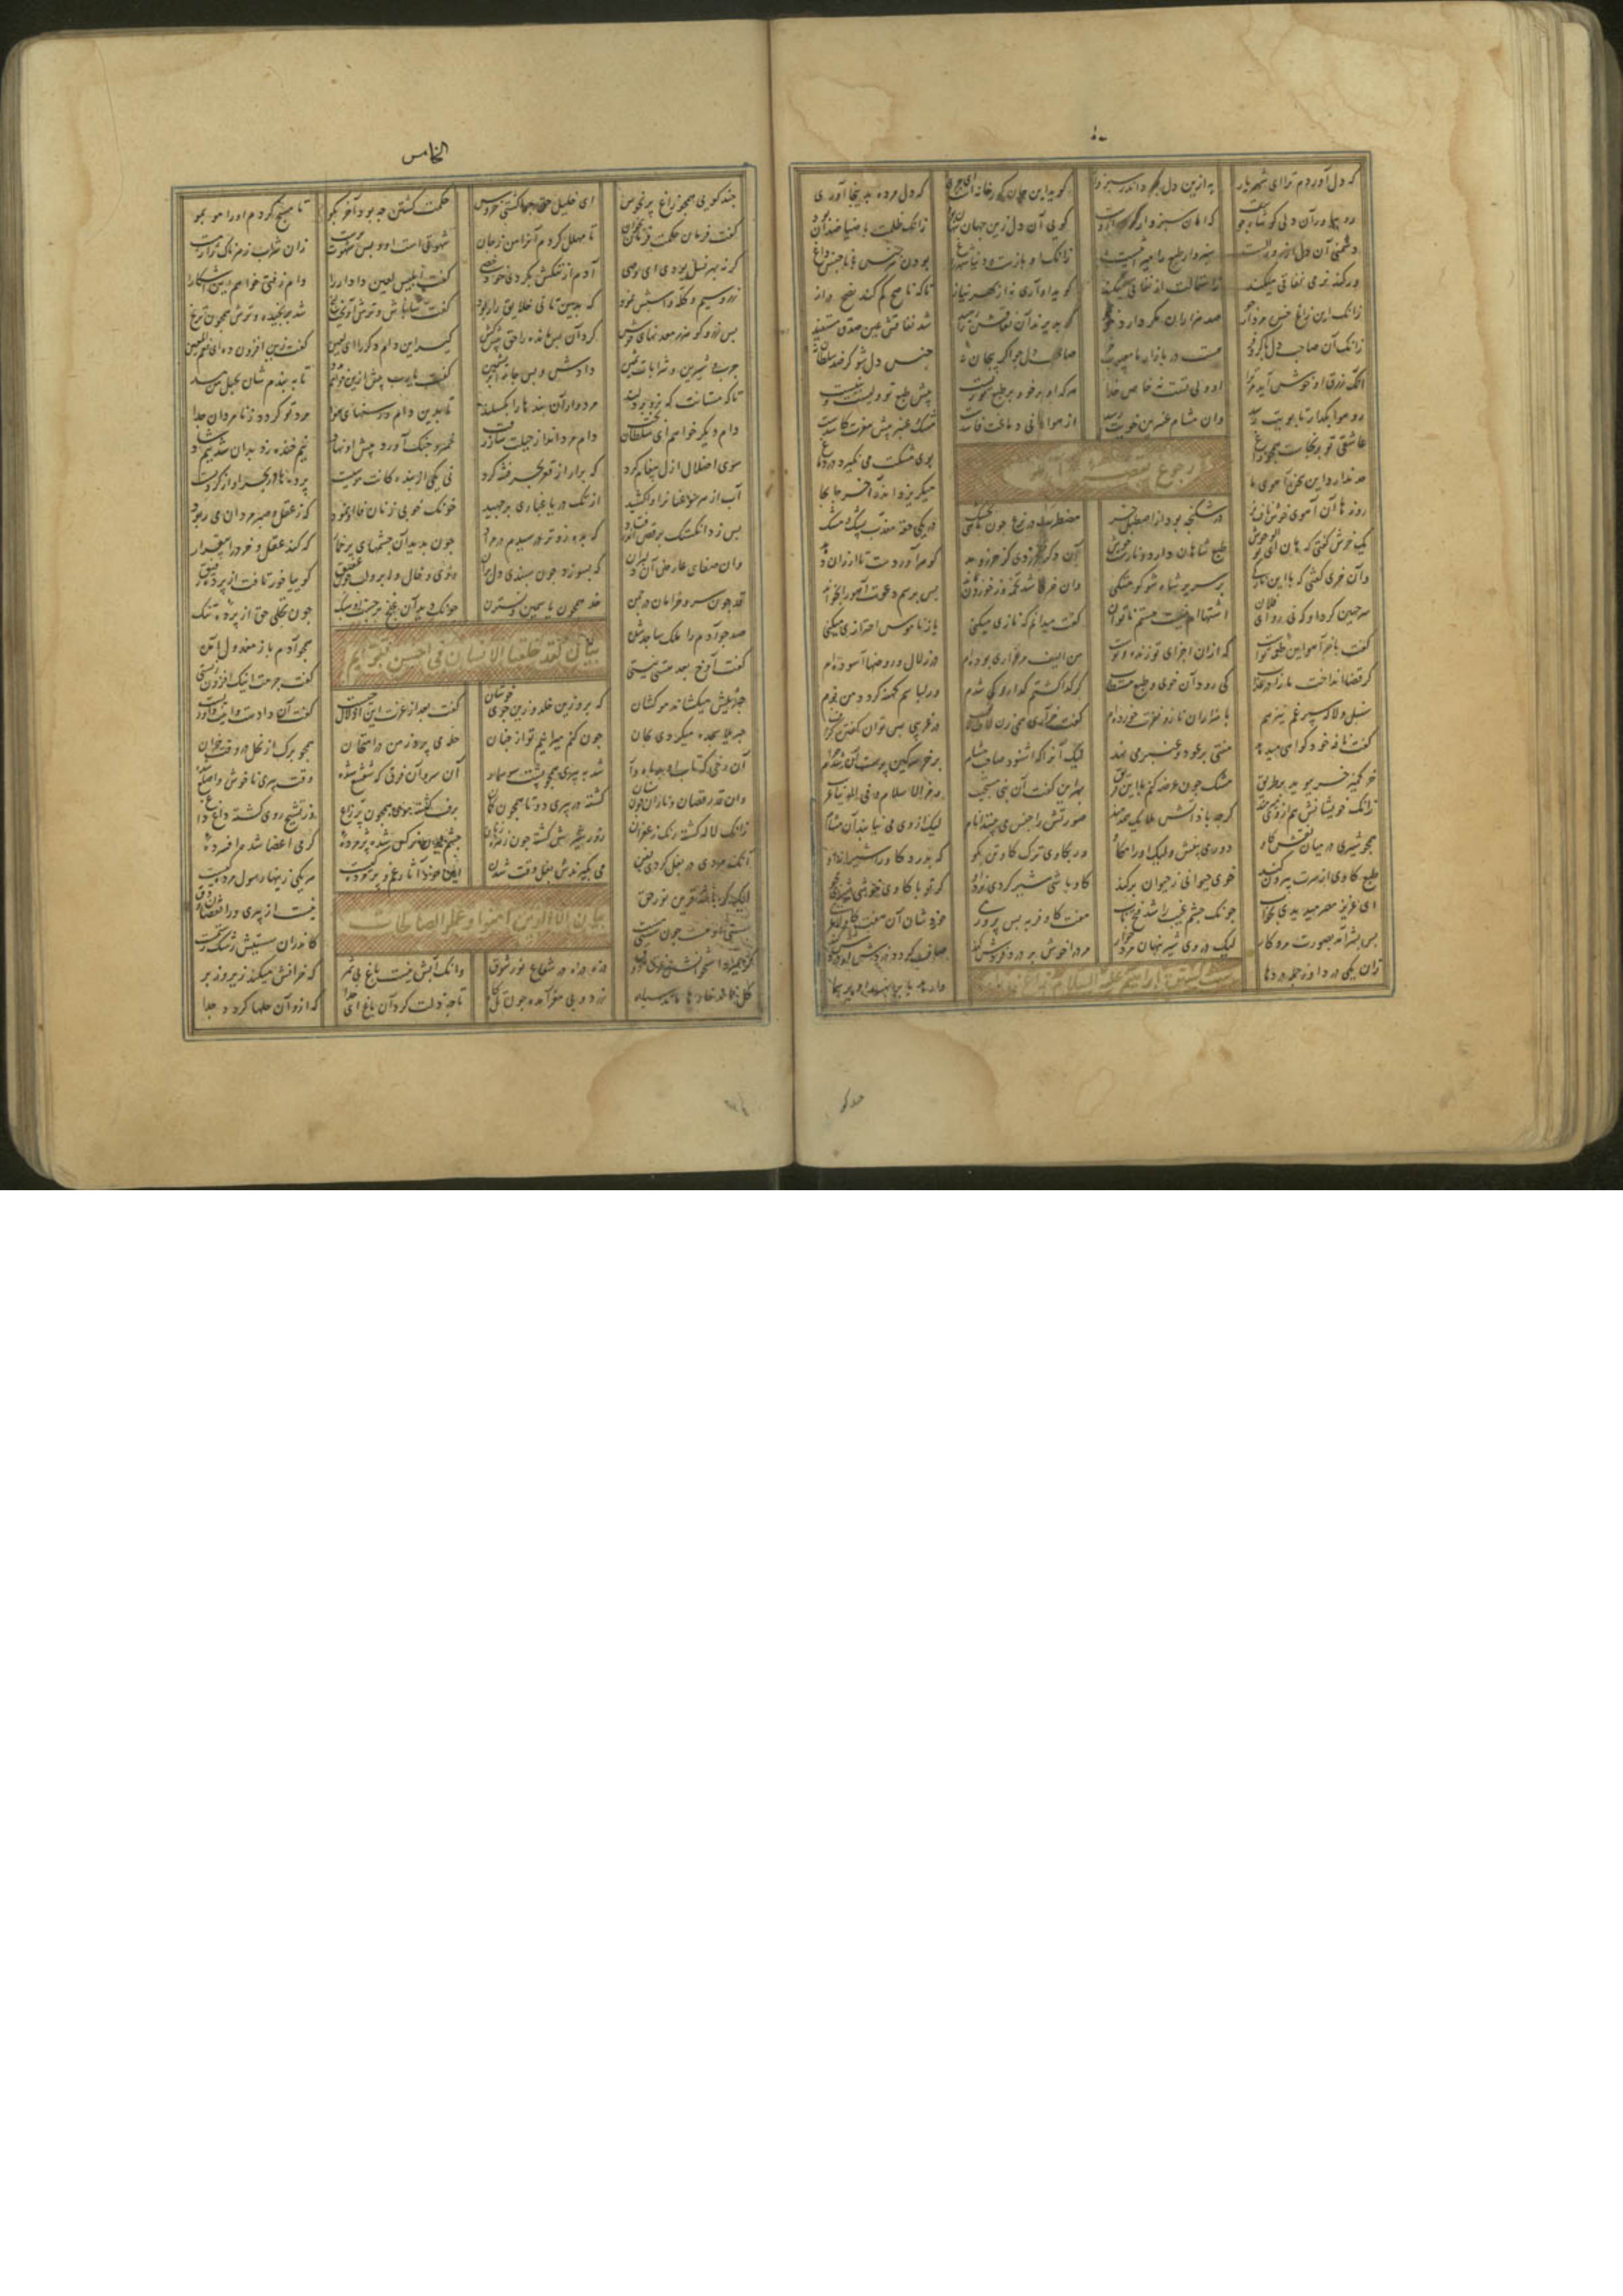 الخامس
که دل آوردم ترا ای شهریار به ازین دل نبود اندر سبزوار گوید این گورخانه ای جری که دل مرده بدینجا آوری
رو بیاور آن دلی کو شاه خوست که امان سبزوار کون ازوست گویی آن دل زین جهان پنهان بود زانک ظلمت با ضیا ضدان بود
دشمنی آن دل از روز الست سبزوار طبع را میراثیست زانک او بازست و دنیا شهر زاغ
ور کند نرمی نفاقی میکند ز استمالت ارتفاقی میکند گوید او آری نه از بهر نیاز تا که ناصح کم کند نصح دراز
زانک این زاغ خس مردارجو صد هزاران مکر دارد تو بتو شد نفاقش عین صدق مستفید
زانک آن صاحب دل هست در بازار ما معیوب خر صاحب دل جو اگر بیجان نه جنس دل شو گر ضد سلطان نه
آنک زرق او خوش آید مر ترا او ولی تست نه خاص خدا هرکه او بر خو و بر طبع تو زیست پیش طبع تو ولیست و نبیست
رو هوا بگذار تا بویت رسد وان مشام عنبرین خویت رسد از هوا رانی دماغت فاسدست مشک عنبر پیش مغزت کاسدست
عاشقی تو بر نجاست همچو زاغ بوی مشکت می نگیرد در دماغ
حد ندارد این سخن آهوی ما میگریزد اندر آخر جا بجا
روزها آن آهوی خوش ناف نر در شکنجه بود در اصطبل خر مضطرب در نزع چون ماهی ز خشک در یکی حقه معذب پشک و مشک
یک خرش گفتی که هان ای بوالوحوش طبع شاهان دارد آن دگر تسخر زدی کز جر و مد گوهر آوردست تا ارزان دهد
وان خری گفتی که با این نازکی بر سریر شاه شو گو متکی وان خری شد تخمه وز خوردن بماند پس برسم دعوت آهو را بخواند
سر چنین کرد او که نی رو ای فلان اشتهاام نیست هستم ناتوان گفت میدانم که نازی میکنی یا ز ناموس احترازی میکنی
گفت با خر آهو این طعمه توست که ازان اجزای تو زنده و نوست من الیف مرغزاری بوده ام در زلال و روضها آسوده ام
گر قضا انداخت ما را در عذاب کی رود آن خوی و طبع مستطاب گر گدا گشتم گدارو کی شوم ور لباسم کهنه گردد من نوم
سنبل و لاله سپرغم نیز هم با هزاران ناز و نفرت خورده ام گفت آری در غریبی بس توان گفتن گزاف
گفت نافه خود گواهی میدهد منتی بر عود و عنبر می نهد لیک آنرا که شنود صاحب مشام بر خر سرگین پرست آن شد حرام
خر کمیز خر ببوید بر طریق مشک چون عرضه کنم با این فریق بهر این گفت آن نبی مستجیب رمز الاسلام فی الدنیا غریب
زانک خویشانش هم از وی می رمند گرچه با ذاتش ملایک همدمند صورتش را جنس می بینند انام لیک از وی می نیابند آن مشام
همچو شیری در میان نقش گاو دور می بینش ولیک او را مکاو ور بکاوی ترک گاو تن بگو که بدرد گاو را
طبع گاوی از سرت بیرون کند خوی حیوانی ز حیوان برکند گاو باشی شیر گردی نزد او گر تو با گاوی خوشی شیری مجو
ای عزیز مصر میدیدی بخواب چونک چشم غیب را شد فتح باب هفت گاو فربه بس پروری خوردشان آن هفت گاو لاغری
پس بشر آمد بصورت مرد کار لیک در وی شیر پنهان مردخوار مرد را خوش در خورد فردش کند صاف گردد دردش
زان یکی درد او ز جمله دردها وارهد پا برنهد او بر سها
چند گویی همچو زاغ پر نحوس ای خلیل حق چرا کشتی خروس حکمت کشتن چه بود آخر بگو تا مسبح گردم او را مو بمو
گفت فرمان حکمت فرمان بخوان تا مهلل گردم آنرا من ز جان شهوتی است او و بس شهوت پرست زان شراب زهرناک ژاژ مست
گرنه بهر نسل بودی ای وصی آدم از ننگش بکردی خود خصی گفت ابلیس لعین دادار را دام زفتی خواهم این اشکار را
زر و سیم و گله اسبش نمود که بدین تانی خلایق را ربود گفت شاباش و ترش آویخت لنج شد ترنجیده و ترش همچون ترنج
پس زر و گوهر ز معدنهای خوش کرد آن پس مانده را حق پیش کش گیر این دام دگر را ای لعین گفت زین افزون ده ای نعم المعین
چرب و شیرین و شرابات ثمین دادش و بس جامه ابریشمین گفت یا رب بیش ازین خواهم مدد تا ببندم شان بحبل من مسد
تا که مستانت که نر و پر دلند مردوار آن بندها را بکسلند تا بدین دام و رسنهای هوا مرد تو گردد ز نامردان جدا
دام دیگر خواهم ای سلطان تخت دام مردانداز حیلت ساز سخت خمر و چنگ آورد پیش او نهاد نیم خنده زد بدان شد نیم شاد
سوی اضلال ازل پیغام کرد که برآر از قعر بحر فتنه گرد نی یکی از بندگانت موسیست پردها در بحر او از گرد بست
آب از هر سو عنان را واکشید از تگ دریا غباری برجهید چونک خوبی زنان با او نمود که ز عقل و صبر مردان می ربود
پس زد انگشتک برقص اندر فتاد که بده زوتر رسیدم در مراد چون بدید آن چشمهای پرخمار که کند عقل و خرد را بیقرار
وان صفای عارض آن دلبران که بسوزد چون سپندی دل بران روی و خال و ابرو و لب چون عقیق گوییا خور تافت از پرده رقیق
قد چون سرو خرامان در چمن خد همچون یاسمین و نسترن چونک دید آن غنج برجست او سبک چون تجلی حق از پرده تنک
بیان لقد خلقنا الانسان فی احسن تقویم
صد چو آدم را ملک ساجد شده همچو آدم باز معزول آمده
گفت آوخ بعد هستی نیستی گفت جرمت اینک افزون زیستی
جبرئیلش میکشاند موکشان که برو زین خلد و زین جوق خوشان گفت بعد از عزت این اذلال چیست گفت آن دادست و اینت داوریست
جبرئیلا سجده میکردی بجان چون کنم میرانیم تو از جنان حله می پرد ز من در امتحان همچو برگ از نخل در وقت خزان
آن رخی که تاب او بد ماهوار شد به پیری همچو پشت سوسمار آن سر و آن فرق گش شعشع شده وقت پیری ناخوش و اصلع شده
وان قد رقصان و نازان چون سنان گشته در پیری دوتا همچون کمان برف گشته موی همچون پر زاغ وز تشنج روی گشته داغ داغ
رنگ لاله گشته رنگ زعفران زور شیرش گشته چون زهره زنان چشم چون نرگس شده پژمرده گرمی اعضا شده افسرده
آنک مردی در بغل کردی بفن می بگیرندش بغل وقت شدن این خود آثار غم و پژمردگیست هر یکی زینها رسول مردگیست
بیان الا الذین آمنوا وعملوا الصالحات
لیک گر باشد قرین نور حق نیست از پیری ورا نقصان و دق
سستی او هست چون سستی مست کاندران سستیش رشک رستمست
گر بمیرد استخوانش غرق ذوق ذره ذره در شعاع نور شوق وانک آنش نیست باغ بی ثمر که خزانش میکند زیر و زبر
گل نماند خارها ماند سیاه زرد و بی مغز آمده چون تل کاه تا چه زلت کرد آن باغ ای خدا که ازو آن حلها گردد جدا